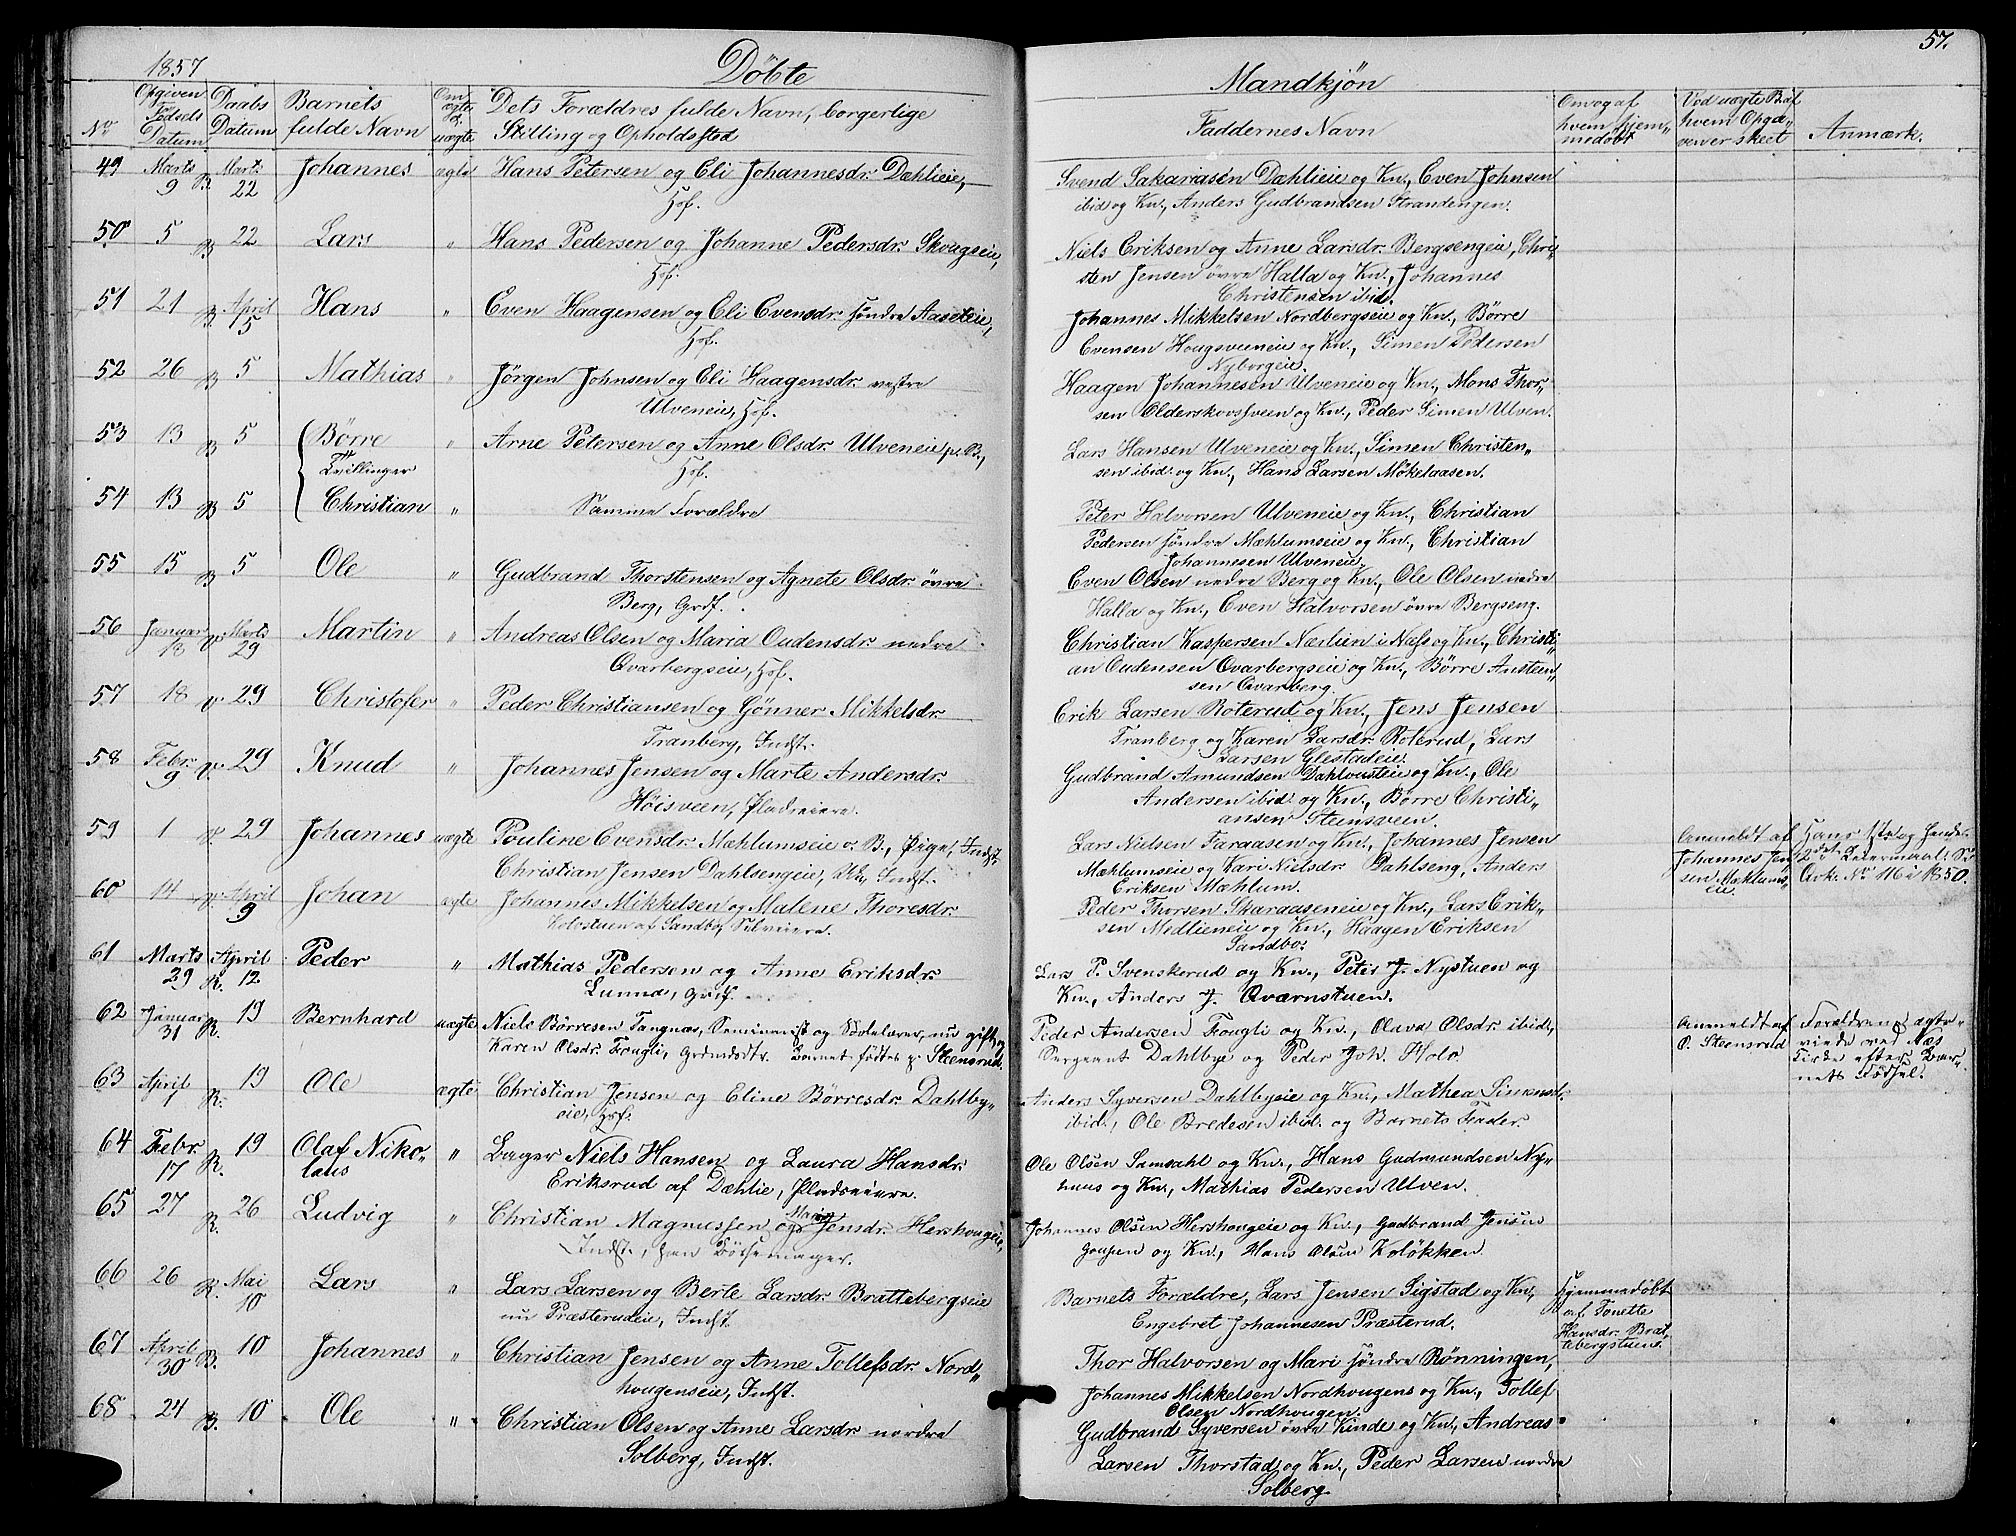 1857 Döbte
No Opgiven Fødsels Datum Daabs Datum Barnets fulde Navn Om ægte el. uægte Dets Forældres fulde Navn, borgerlige Stilling og Opholdssted
49 Marts 9 B. Marts 22 Johannes ægte Hans Petersen og Eli Johannesdr. Dæhlieie,
Hsf.
50 5 B 22 Lars " Hans Pedersen og Johanne Pedersdr. Skvagseie,
Hsf.
51 21 B. April 5 Hans " Even Haagensen og Eli Evensdr. søndre Aaseteie,
Hsf.
52 26 B 5 Mathias " Jörgen Johnsen og Eli Haagensdr. vestre
Ulveneie, Hsf.
53 13 B 5 Börre " Arne Petersen og Anne Olsdr. Ulveneie p. B.,
Tvillinger Hsf.
54 13 B 5 Christian " Samme Forældre
55 15 B 5 Ole " Gudbrand Thorstensen og Agnete Olsdr. övre
Berg, Grdf.
56 Januar 18 Marts 29 Martin " Andreas Olsen og Maria Oudensdr. nedre
Qvarbergseie, Hsf.
57 18 29 Christofer " Peder Christiansen og Gönner Mikkelsdr.
Tranberg, Indst.
58 Febr. 9 29 Knud " Johannes Jensen og Marte Andersdr.
Höisveen, Pladseiere.
59 1 29 Johannes uægte Pouline Evensdr. Mæhlumseie o. B., Pige, Indst
Christian Jensen Dahlsengeie, Uk., Indst.
60 14 April 9 Johan ægte Johannes Mikkelsen og Malene Thoresdr.
Kolostuen af Sandbo, Selveiere.
61 Marts 29 R. April 12 Peder " Mathias Pedersen og Anne Eriksdr.
Lunna, Grdf.
62 Januar 31 R. 19 Bernhard uægte Niels Börresen Tangnæs, Seminarist og Skolelærer, nu gift og
Karen Olsdr. Fougli, Grdmdsdtr. Barnet födtes p. Steensrud.
63 April 1 R. 19 Ole ægte Christian Jensen og Eline Börresdr. Dahlby„
eie, Hsf.
64 Febr. 17 R. 19 Olaf Niko„ " Bager Niels Hansen og Laura Hansdr.
laus Eriksrud af Dæhlie, Pladseiere.
65 27 R. 26 Ludvig " Christian Magnussen og Maria Jensdr. Hershougeie,
Indst., han Börsemager.
66 26 R. Mai 10 Lars " Lars Larsen og Berte Larsdr. Brattebergseie
nu Præsterudeie, Indst.
67 April 30 B. 10 Johannes " Christian Jensen og Anne Tollefsdr. Nord„
hougenseie, Indst.
68 24 B. 10 Ole " Christian Olsen og Anne Larsdr. nordre
Solberg, Indst.
57.
Mandkjön
Faddernes Navn Om og af hvem hjem„ medöbt Ved uægte B. af hvem Opga„ ven er skeet Anmærk.
Svend Sakariasen Dæhlieie og Kn., Even Johnsen
ibid og Kn., Anders Gudbrandsen Strandengen.
Niels Eriksen og Anne Larsdr. Bergsengeie, Chri„
sten Jensen övre Halla og Kn., Johannes
Christensen ibid.
Johannes Mikkelsen Nordbergseie og Kn., Börre
Evensen Hougsveeneie og Kn., Simen Pedersen
Nyborgeie.
Haagen Johannesen Ulveneie og Kn., Mons Thor„
sen Olderskovsveen og Kn., Peder Simen Ulven.
Lars Hansen Ulveneie og Kn., Simen Christen„
sen ibid. og Kn., Hans Larsen Mökelaasen.
Peter Halvorsen Ulveneie og Kn., Christian
Pedersen söndre Mæhlumseie og Kn., Christian
Johannesen Ulveneie.
Even Olsen nedre Berg og Kn., Ole Olsen nedre
Halla og Kn., Even Halvorsen övre Bergseng.
Christian Kaspersen Nærlien i Næs og Kn., Christi„
an Oudensen Qvarbergseie og Kn., Börre Ansteen„
sen Qvarberg.
Erik Larsen Roterud og Kn., Jens Jensen
Tranberg og Karen Larsdr. Roterud, Lars
Larsen Glestadeie.
Gudbrand Amundsen Dahlousteie og Kn., Ole
Andersen ibid. og Kn., Börre Christi„
ansen Steensveen.
Lars Nielsen Faraasen og Kn., Johannes Jensen
Mæhlumseie og Kari Nielsdr. Dahlseng, Anders
Eriksen Mæhlum.
Anmeldt af
Johannes Jen„
sen Mæhlums„
eie.
Hans 1ste og hendes
2det Leiermaal. Se
Kirk. No 116 i 1850.
Peder Thorsen Skaraaseneie og Kn., Lars Erik„
sen Medlieneie og Kn., Haagen Eriksen
Sandbo.
Lars P. Svenskerud og Kn., Peter J. Nystuen og
Kn., Anders J. Qværnstuen.
Peder Andersen Fougli og Kn., Olava Olsdr. ibid.,
Sergeant Dahlbye og Peder Joh. Holo
Anmeldt af
P. Steensrud
Forældrene ægte„
viede ved Næs
Kirke efter Bar„
nets Födsel.
Anders Syversen Dahlbyeie og Kn., Mathea Simensdr.
ibid., Ole Bredesen ibid. og Barnets Fader.
Ole Olsen Samsahl og Kn., Hans Gudmundsen Ny„
huus og Kn., Mathias Pedersen Ulven.
Johannes Olsen Hershougeie og Kn., Gudbrand Jensen
Goupen og Kn., Hans Olsen Kolökken.
Barnets Forældre, Lars Jensen Sigstad og Kn.,
Engebret Johannesen Præsterud.
Hjemmedöbt
af Tonette
Hansdr. Brat„
tebergstuen.
Thor Halvorsen og Mari söndre Rönningen,
Johannes Mikkelsen Nordhougens og Kn., Tollef
Olsen Nordhougen.
Gudbrand Syversen övre Kinde og Kn., Andreas
Larsen Thorstad og Kn., Peder Larsen nordre
Solberg.